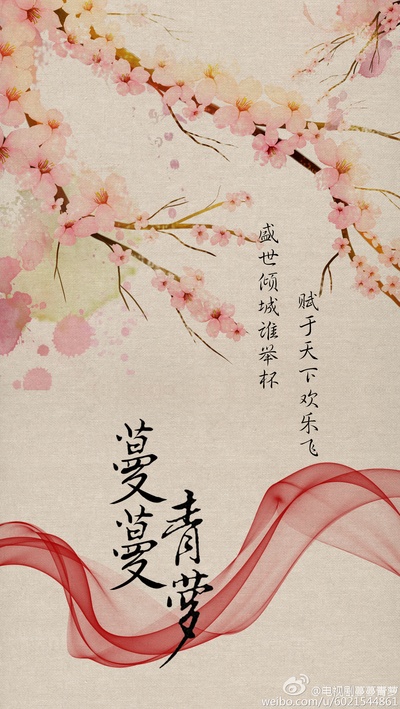 盛世倾城谁举杯
赋于天下欢乐飞
蔓蔓
青萝
@电视剧蔓蔓青萝
weibo.com/u/6021544861